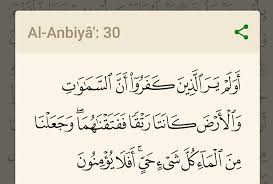 Al-Anbiyâ': 30
أَوَلَمْ يَرَ ٱلَّذِينَ كَفَرُوٓا۟ أَنَّ ٱلسَّمَـٰوَٰتِ
وَٱلْأَرْضَ كَانَتَا رَتْقًا فَفَتَقْنَـٰهُمَا ۖ وَجَعَلْنَا
مِنَ ٱلْمَآءِ كُلَّ شَىْءٍ حَىٍّ ۖ أَفَلَا يُؤْمِنُونَ